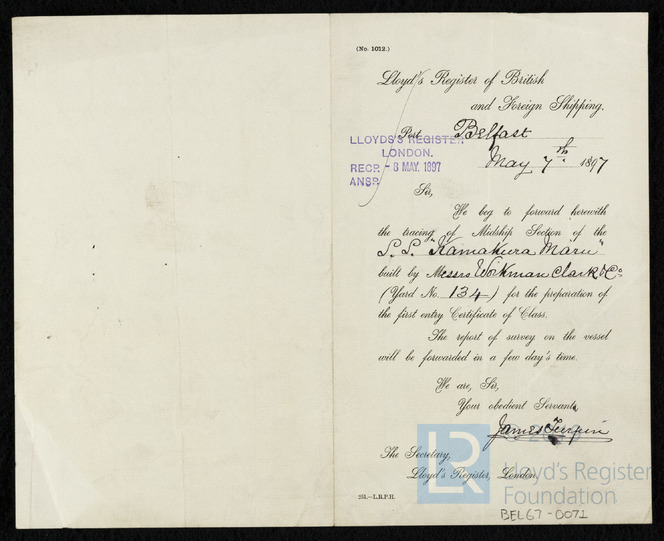 (No. 1012.)
Lloyd's Register of British
and Foreign Shipping.
Port Belfast
LLOYDS'S REGISTER
LONDON.
May 7th 1897
RECD - 8 MAY. 1897
ANSD.
Sir,
We beg to forward herewith
the tracing of Midship Section of the
S.S. "Kamakura Maru"
built by Messrs Workman Clark & Co
(Yard No. 134) for the preparation of
the first entry Certificate of Class.
The report of survey on the vessel
will be forwarded in a few day's time.
We are, Sir,
Your obedient Servants,
James
The Secretary,
Lloyd's Register, London.
251.—L.R.P.H.
LR
Lloyd's Register
Foundation
BEL67-0071